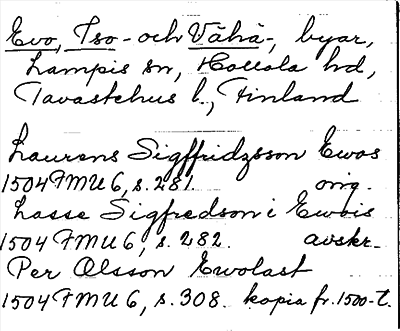 Evo, Iso- och Vähä-, byar,
Lampis sn, Hollola hd,
Tavastehus l., Finland
Laurens Sigffridzsson Ewos
1504 FMU 6, s. 281. orig.
Lasse Sigfredson i Ewois
1504 FMU 6, s. 282. avskr.
Per Olsson Ewolast
1504 FMU 6, s. 308. kopia fr. 1500-t.